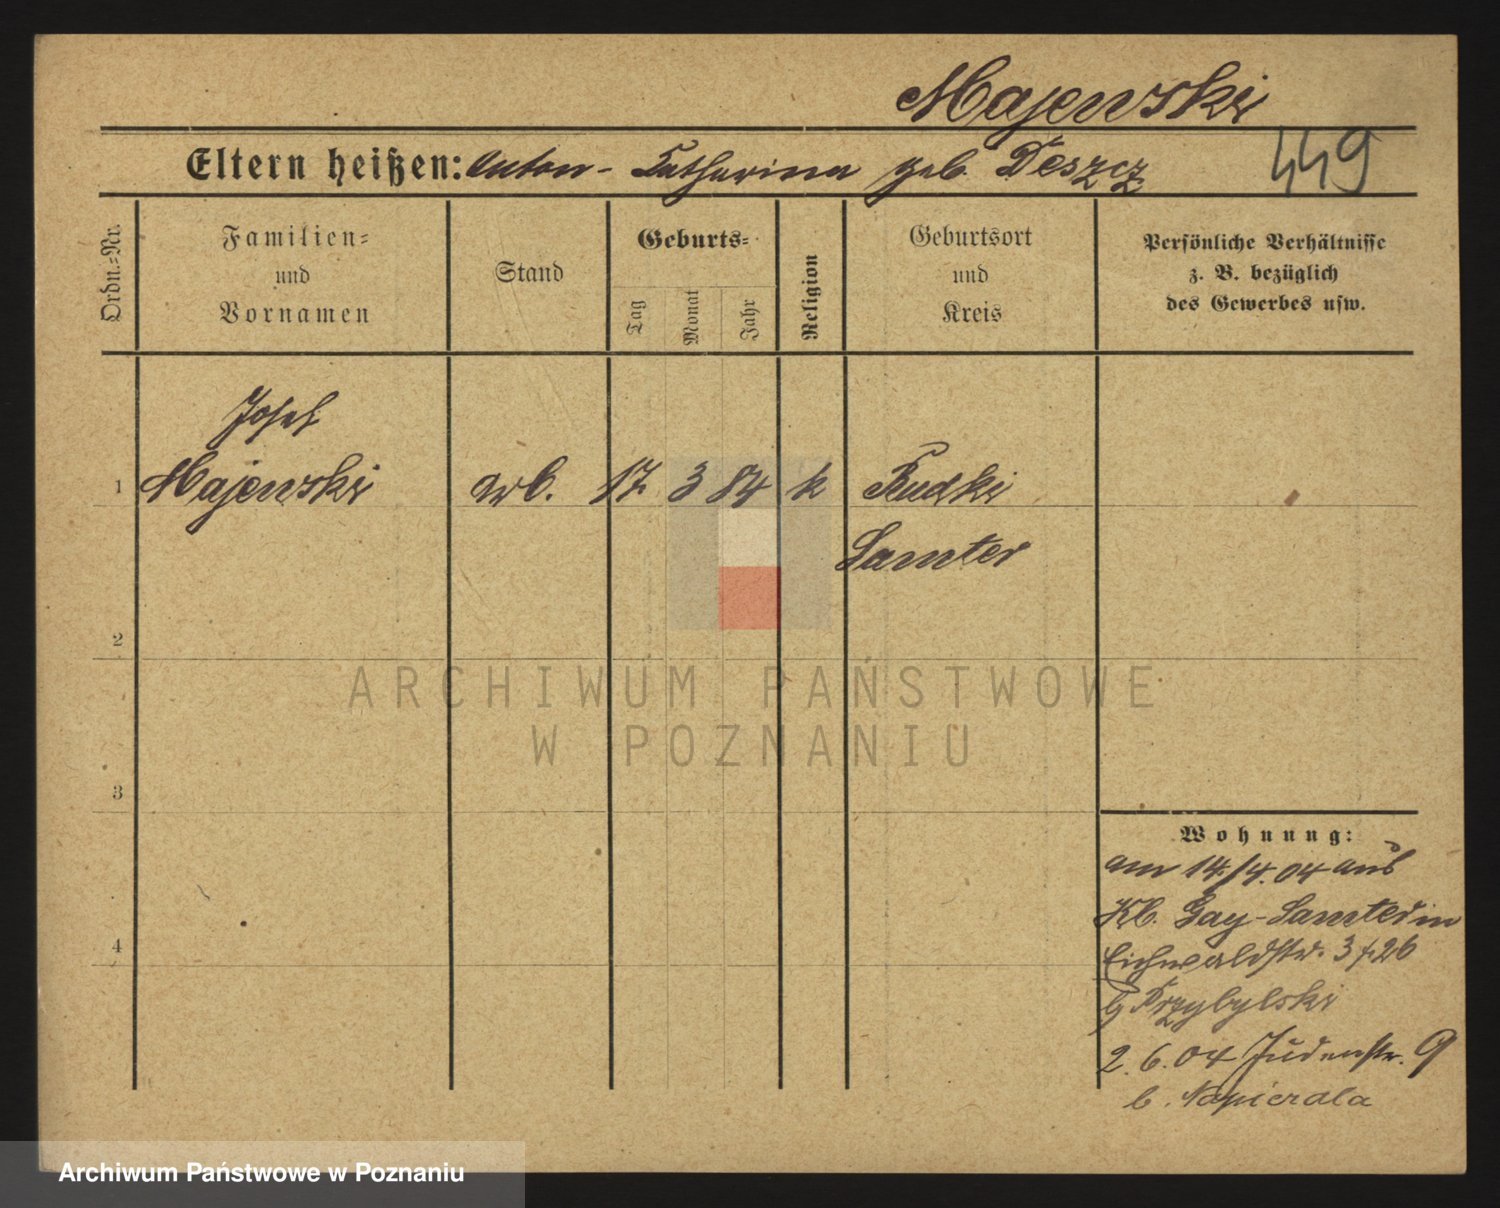 Majewski
Eltern heißen: Anton - Katharina geb. Deszcz
449
Ordn.-Nr.
Familien-
und
Vornamen
Stand
Geburts-
Tag
Monat
Jahr
Religion
Geburtsort
und
Kreis
Persönliche Verhältnisse
z. B. bezüglich
des Gewerbes usw.
Josef
1 Majewski arb. 17 3 84 k Rudki
Samter
2
3
4
Wohnung:
am 14/4.04 aus
Kb. Gay-Samter in
Eichwaldstr. 326
b Przybylski
2.6.04 Judenstr. 9
b. Napierala
ARCHIWUM PAŃSTWOWE
W POZNANIU
Archiwum Państwowe w Poznaniu